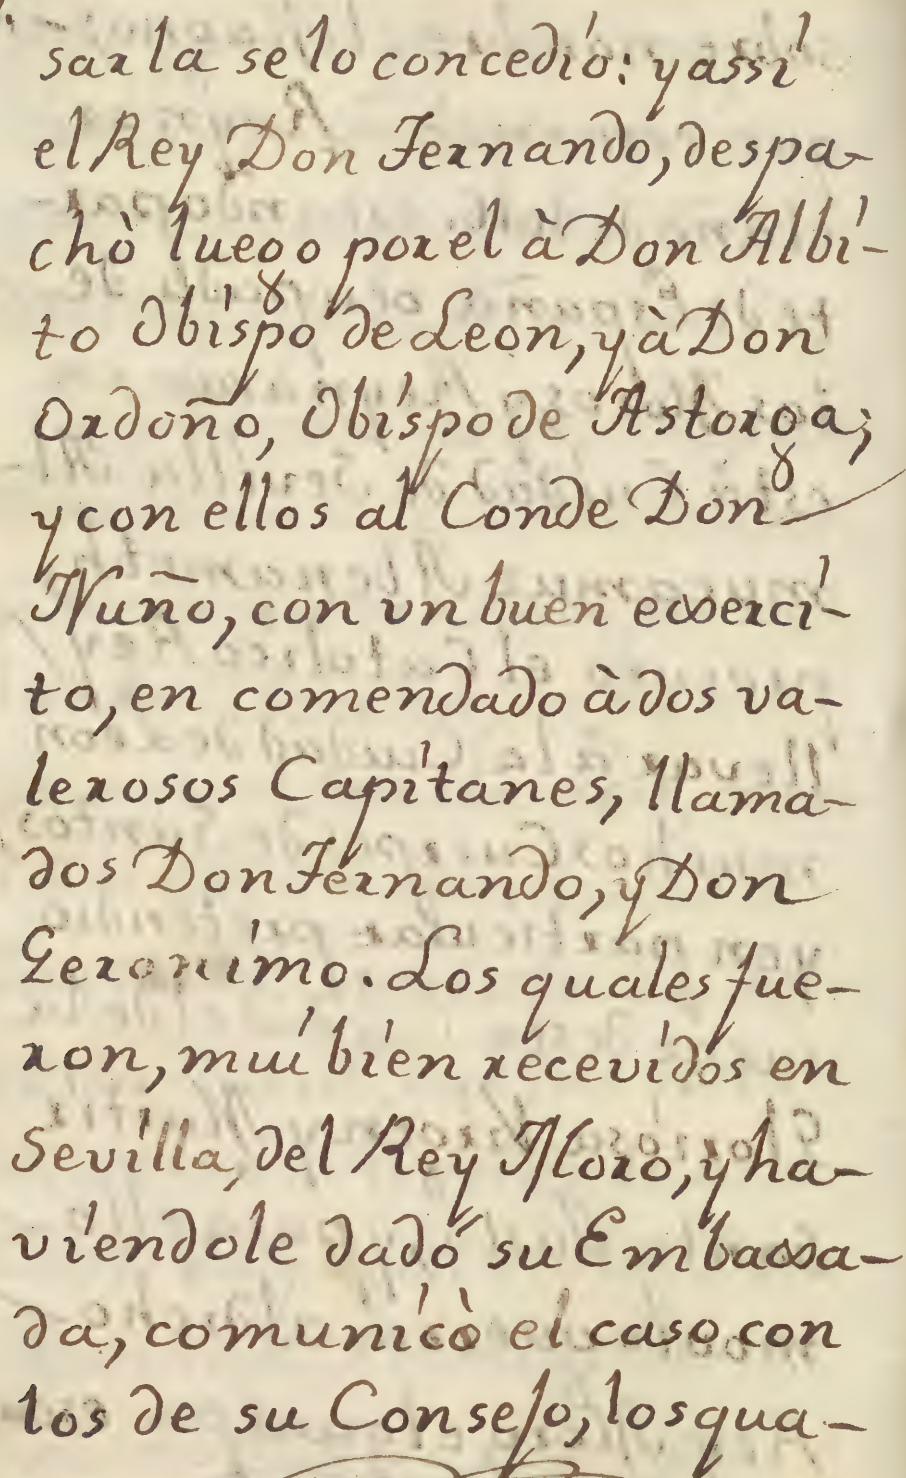 sar la se lo concedió: y assí
el Rey Don Fernando, despa-
chò luego por el à Don Albí-
to Obíspo de Leon, y à Don
Ordoño, Obíspo de Astorga;
y con ellos al Conde Don
Nuño, con vn buen exercí-
to, en comendado à dos va-
lerosos Capítanes, llama-
dos Don Fernando, y Don
Geronímo. Los quales fue-
ron, muí bíen recevídos en
Sevílla, del Rey Moro, y ha-
víendole dado su Embaxa-
da, comunícò el caso con
los de su Consejo, los qua-